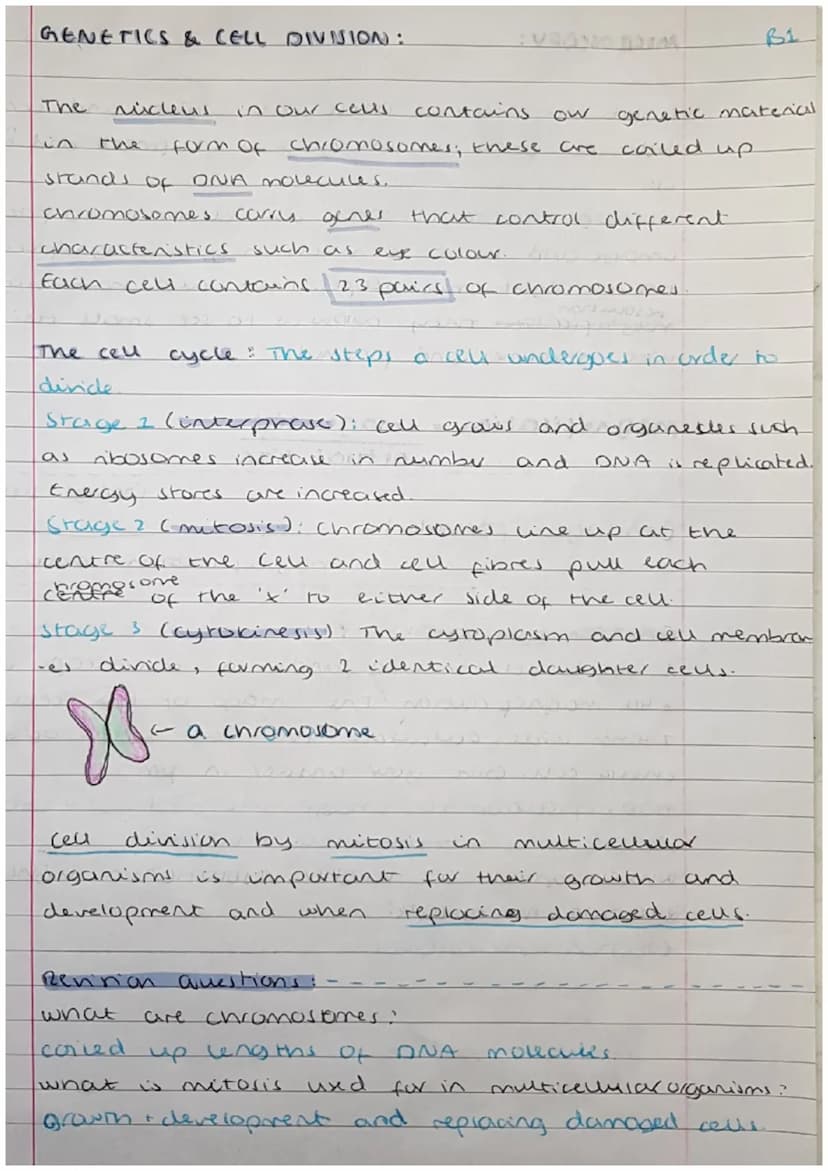 GENETICS & CELL DIVISION:
B1
The nucleus in our cells contains our genetic material
in the form of chromosomes; these are coiled up
stands of DNA molecules.
chromosomes carry genes that control different
characteristics such as eye colour.
Each cell contains 23 pairs of chromosomes.
The cell cycle: The steps a cell undergoes in order to
divide
Stage 1 (interphase): cell grows and organelles such
as ribosomes increase in number and DNA is replicated.
Energy stores are increased.
Stage 2 (mitosis): Chromosomes line up at the
centre of the cell and cell fibres pull each
chromosome
centre of the 'x' to either side of the cell.
Stage 3 (cytokinesis): The cytoplasm and cell membran
-es divide, forming 2 identical daughter cells.
← a chromosome
Cell division by mitosis in multicellular
organisms is important for their growth and
development and when replacing damaged cells.
Revision questions: - - - - - - - - - - - - - - -
what are chromosomes?
coiled up lengths of DNA molecules.
what is mitosis used for in multicellular organisms?
growth + development and replacing damaged cells.